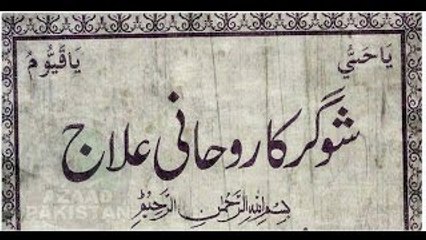 یَا حَیُّ یَا قَیُّومُ
شوگر کا روحانی علاج
بِسْمِ اللہِ الرَّحْمٰنِ الرَّحِیْمِ
AZAAD
PAKISTAN